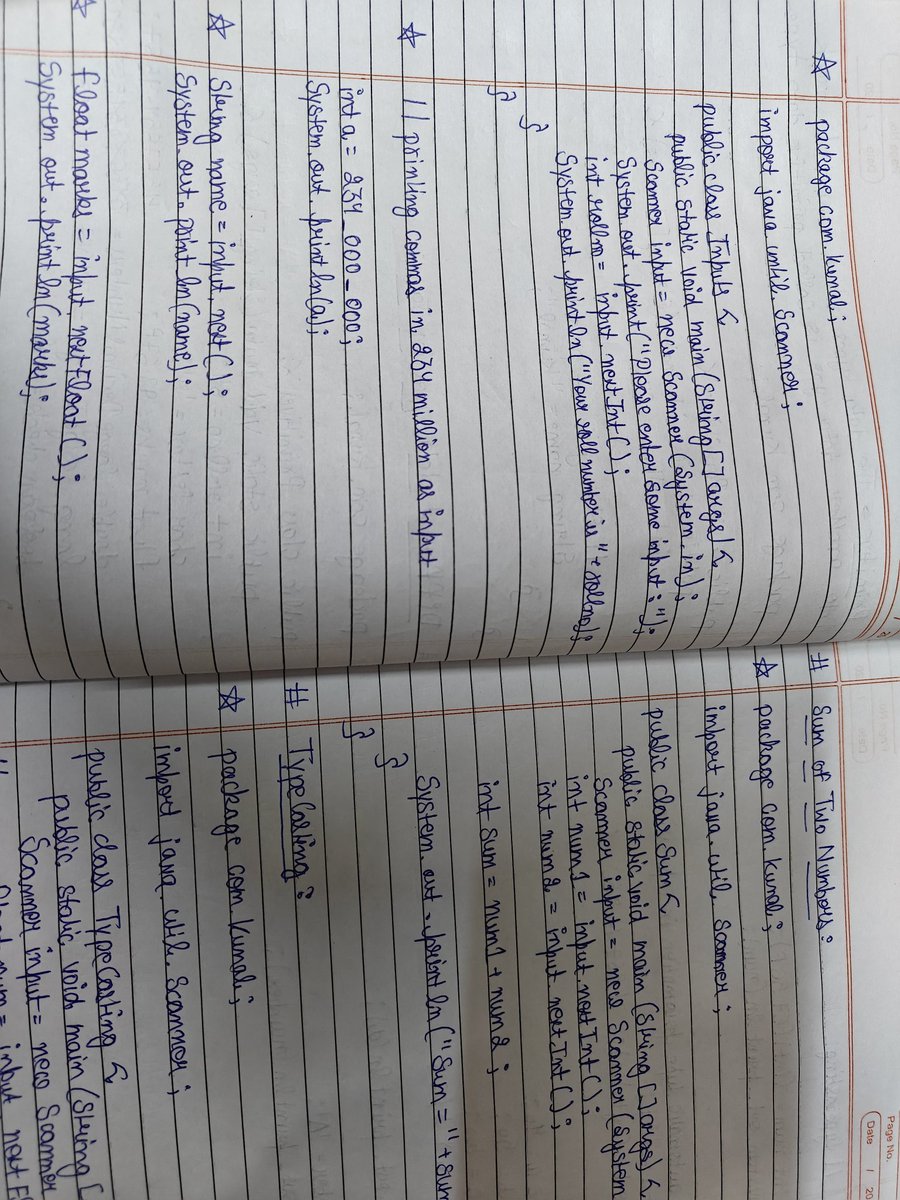 ☆ package com.kunal;
import java.util.Scanner;
public class Inputs {
public static void main (String [] args) {
Scanner input = new Scanner (System.in);
System.out.print("Please enter some input : ");
int rollno = input.nextInt();
System.out.println("Your roll number is " + rollno);
}
}
☆ // printing commas in 234 million as input
int a = 234_000_000;
System.out.println(a);
☆ String name = input.next();
System.out.println(name);
☆ float marks = input.nextFloat();
System.out.println(marks);
Page No.
Date / 20
# Sum of Two Numbers :
☆ package com.kunal;
import java.util.Scanner;
public class Sum {
public static void main (String [] args) {
Scanner input = new Scanner (System
int num1 = input.nextInt();
int num2 = input.nextInt();
int sum = num1 + num2 ;
System.out.println("Sum = " + sum
}
}
# TypeCasting :
☆ package com.kunal;
import java.util.Scanner;
public class TypeCasting {
public static void main (String [
Scanner input = new Scanner
= input